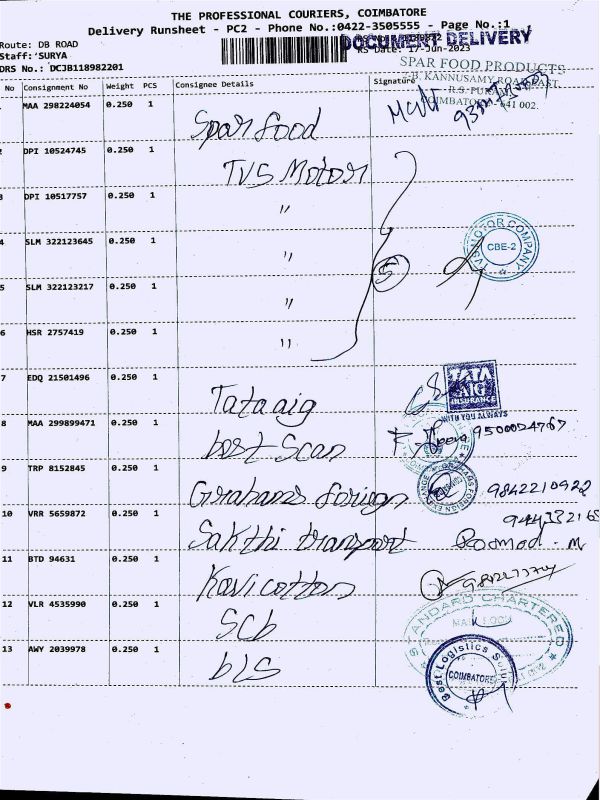 THE PROFESSIONAL COURIERS, COIMBATORE
Delivery Runsheet - PC2 - Phone No.:0422-3505555 - Page No.:1
DOCUMENT DELIVERY
Route: DB ROAD
RS Date: 17-Jun-2023
Staff: SURYA
DRS No.: DCJB118982201
SPAR FOOD PRODUCTS
B. KANNUSAMY ROAD EAST,
R.S. PURAM
COIMBATORE - 641 002.
No Consignment No Weight PCS Consignee Details Signature
MAA 298224054 0.250 1 Spar food
2 DPI 10524745 0.250 1 TVS Motor
3 DPI 10517757 0.250 1 "
4 SLM 322123645 0.250 1 "
TVS MOTOR COMPANY
CBE-2
5 SLM 322123217 0.250 1 " 5
6 HSR 2757419 0.250 1 "
7 EDQ 21501496 0.250 1 Tata aig
TATA
AIG
INSURANCE
WITH YOU ALWAYS
8 MAA 299899471 0.250 1 best Scan 9500024767
9 TRP 8152845 0.250 1 Grahams forign 9842210922
10 VRR 5659872 0.250 1 Sakthi transport
11 BTD 94631 0.250 1 Kavi cotton
12 VLR 4535990 0.250 1 Scb
STANDARD CHARTERED
13 AWY 2039978 0.250 1 bLS
Best Logistics
COIMBATORE